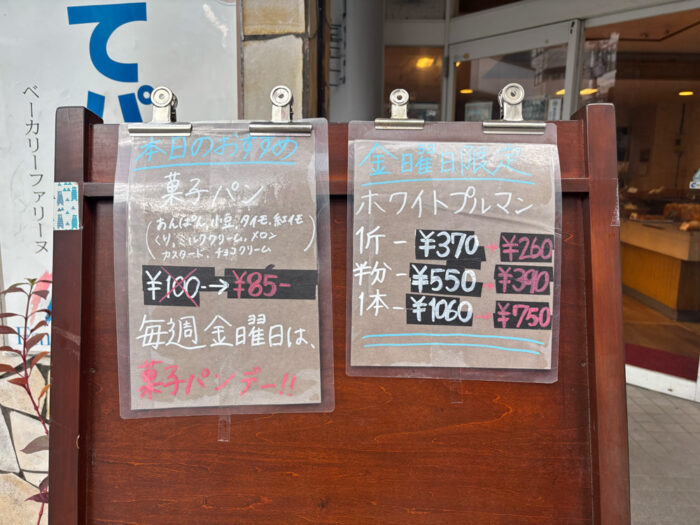 てパ
ベーカリーファリーヌ
本日のおすすめ
菓子パン
(あんぱん,小豆,タイモ,紅イモ
くり,ミルククリーム,メロン
カスタード,チョコクリーム)
¥100→¥85-
毎週金曜日は、
菓子パンデー!!
金曜日限定
ホワイトプルマン
1斤-¥370→¥260
半分-¥550→¥390
1本-¥1060→¥750